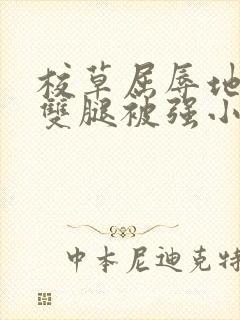 校草屈辱地
雙腿被强小
中本尼迪克特